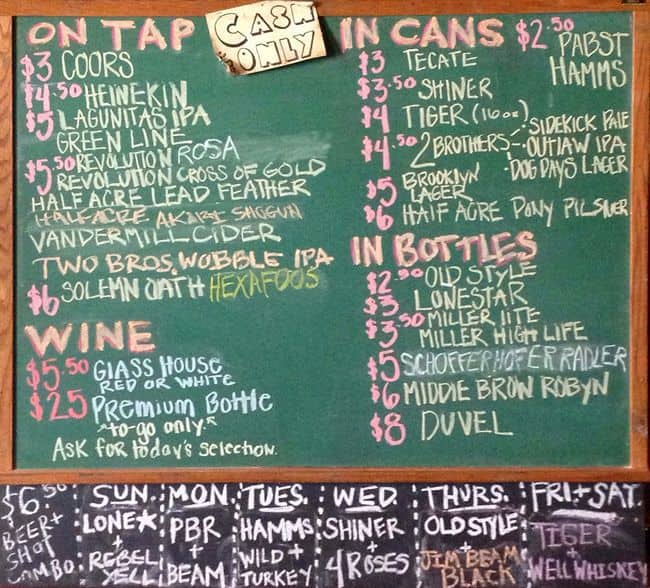 ON TAP
CASH
ONLY
$3 COORS
$4.50 HEINEKIN
$5 LAGUNITAS IPA
GREEN LINE
$5.50 REVOLUTION ROSA
$5 REVOLUTION CROSS OF GOLD
HALF ACRE LEAD FEATHER
HALF ACRE AKARI SHOGUN
VANDERMILL CIDER
TWO BROS. WOBBLE IPA
$6 SOLEMN OATH HEXAFOOS
WINE
$5.50 GLASS HOUSE
RED OR WHITE
$25 PREMIUM BOTTLE
*to-go only.*
ASK FOR today's SELECTION.
IN CANS
$2.50 PABST
HAMMS
$3 TECATE
$3.50 SHINER
$4 TIGER (16oz)
$4.50 2 BROTHERS - SIDEKICK PALE
- OUTLAW IPA
- DOG DAYS LAGER
$5 BROOKLYN
LAGER
$6 HALF ACRE PONY PILSNER
IN BOTTLES
$2.50 OLD STYLE
$3 LONESTAR
$3.50 MILLER LITE
MILLER HIGH LIFE
$5 SCHOFFERHOFER RADLER
$6 MIDDLE BROW ROBYN
$8 DUVEL
$6.50
BEER +
SHOT
COMBO:
SUN.
LONE★
+
REBEL
YELL
MON.
PBR
+
BEAM
TUES.
HAMMS
+
WILD
TURKEY
WED.
SHINER
+
4 ROSES
THURS.
OLD STYLE
+
JIM BEAM
BLACK
FRI.+SAT.
TIGER
+
WELL WHISKEY